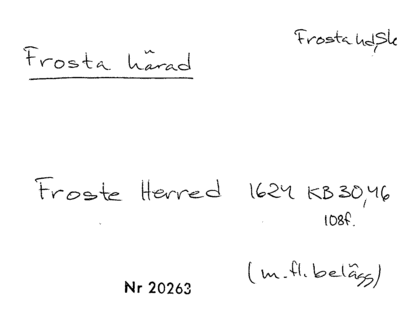 Frosta hd, Sk
Frosta härad
Froste Herred 1624 KB 30,46
108f.
(m.fl. belägg)
Nr 20263